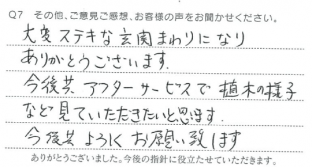 Q7 その他、ご意見ご感想、お客様の声をお聞かせください。
大変ステキな玄関まわりになり
ありがとうございます.
今後共 アフターサービスで 植木の様子
など見ていただきたいと思います.
今後共 よろしく お願い致します
ありがとうございました。今後の指針に役立たせていただきます。